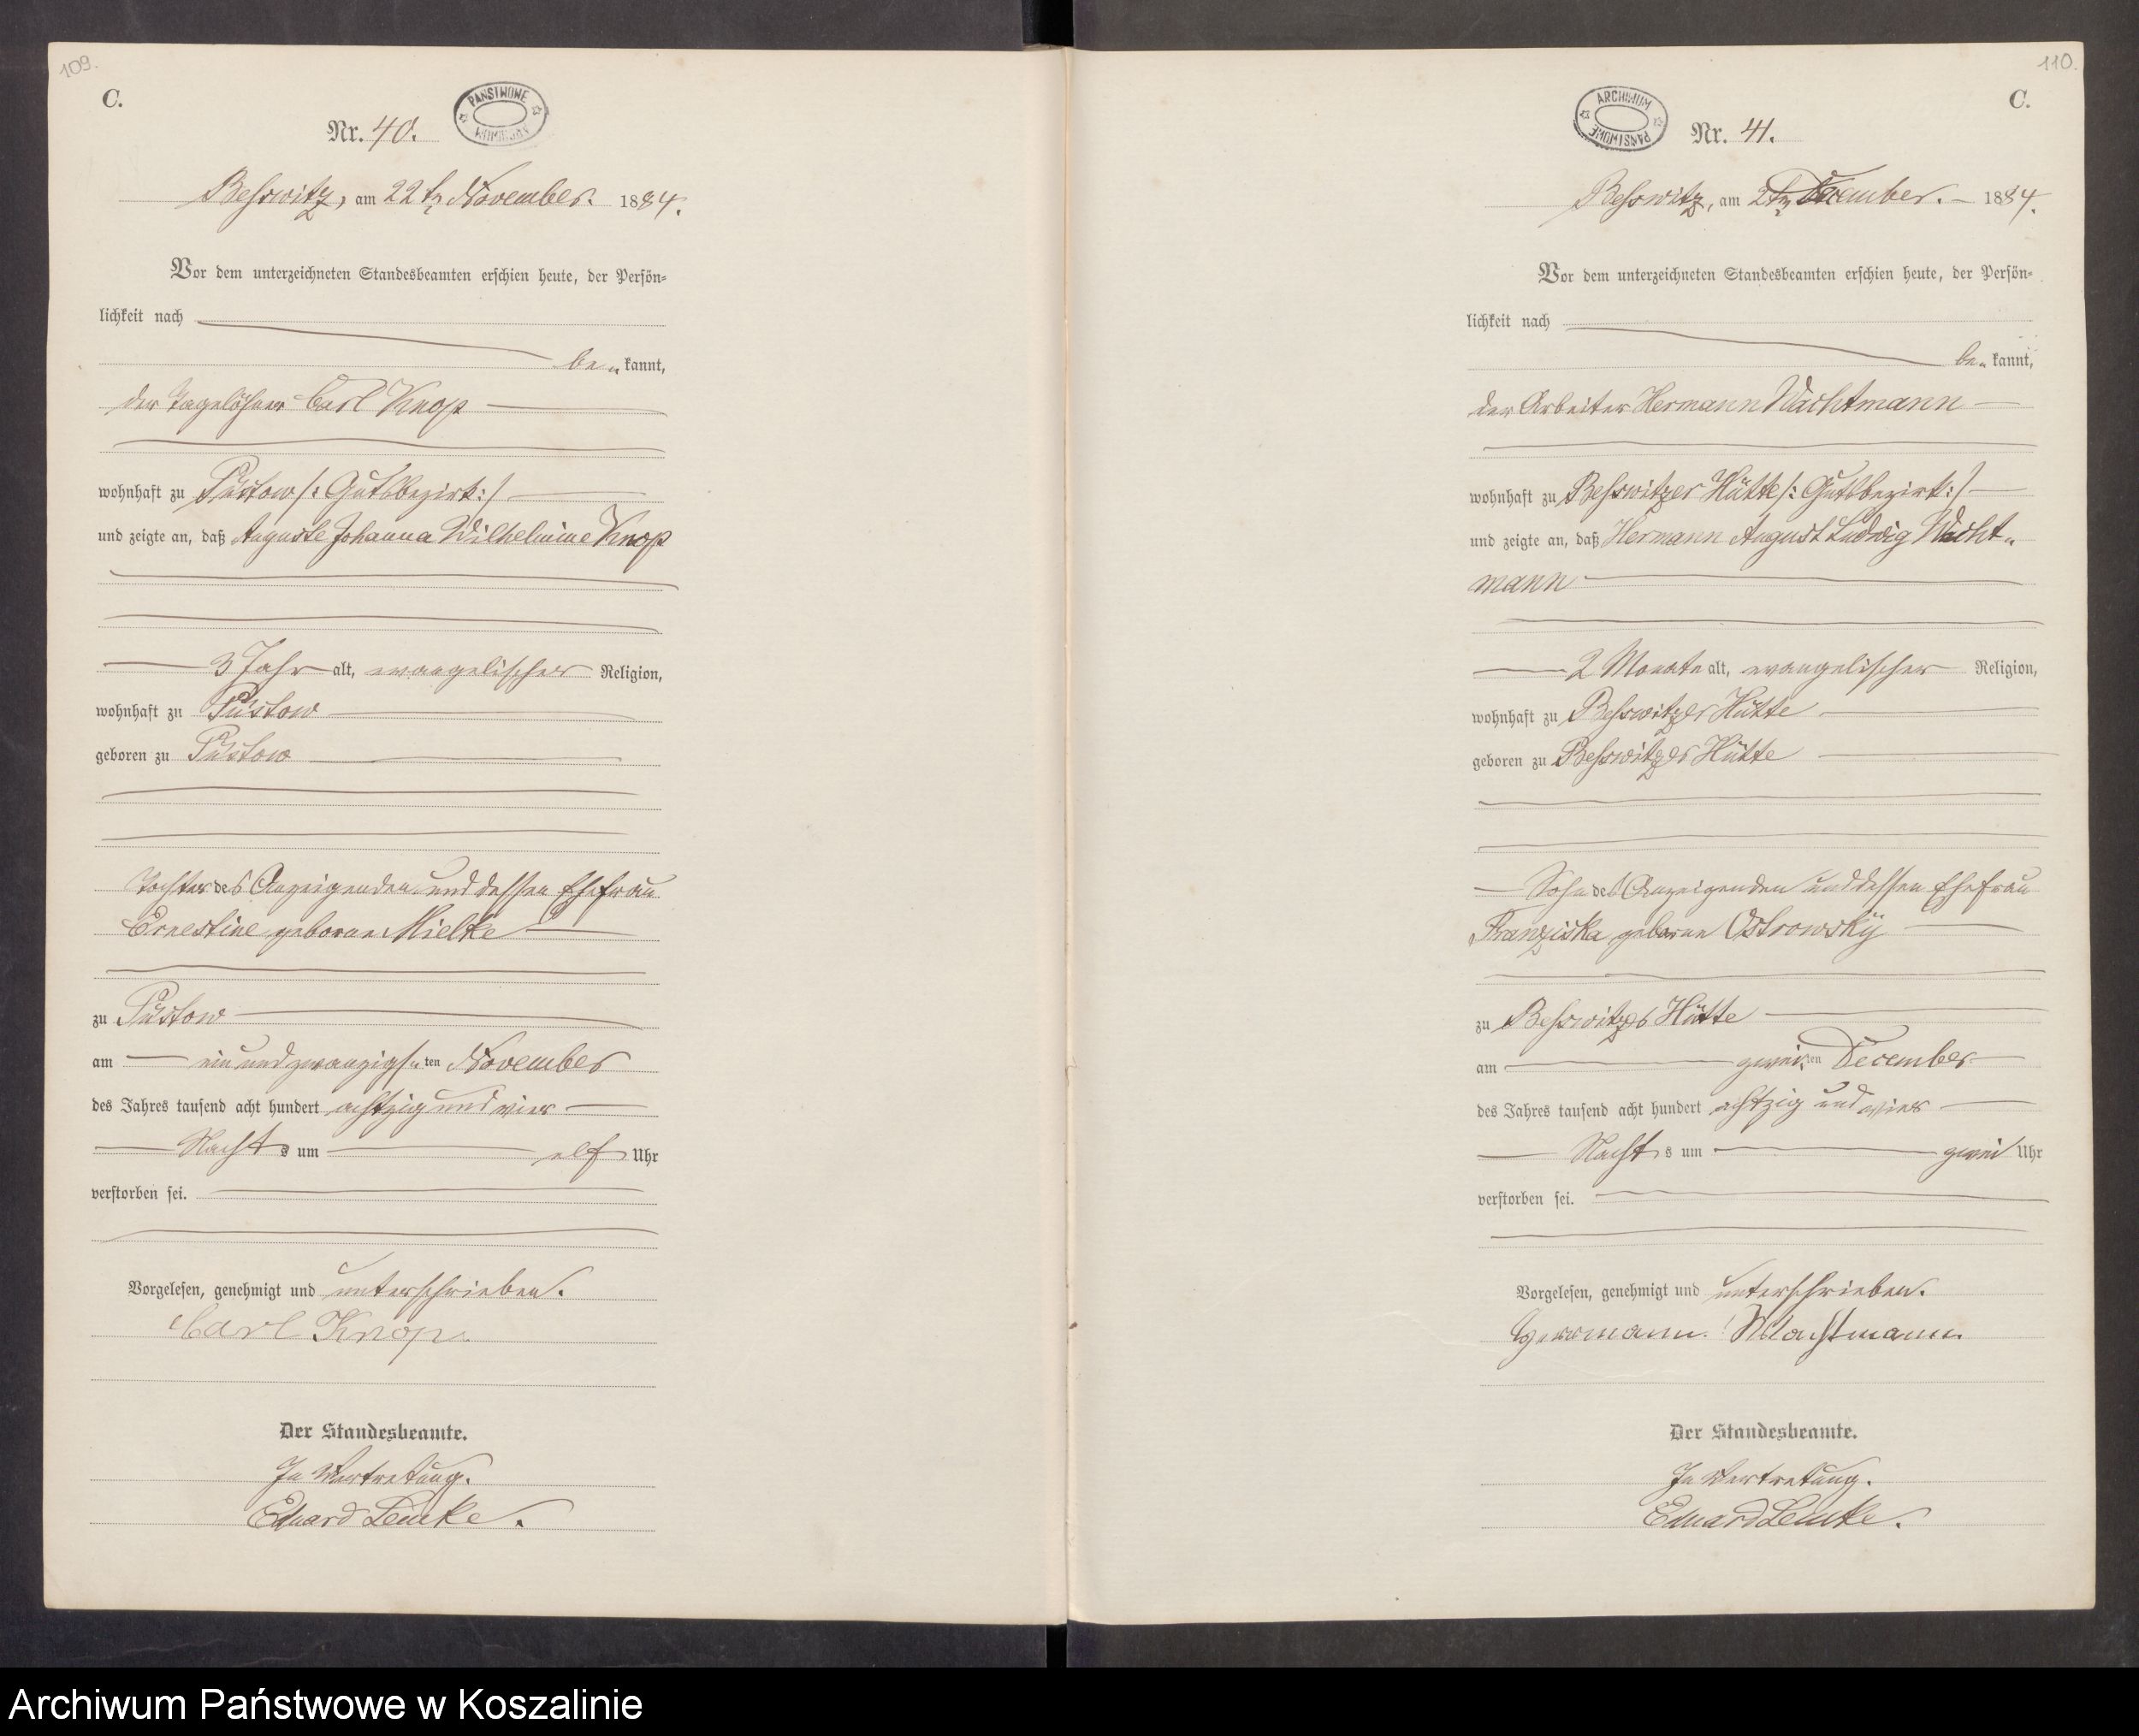 109.
C.
PAŃSTWOWE ARCHIWUM
Nr. 40.
Beßwitz, am 22 ten November. 1884.
Vor dem unterzeichneten Standesbeamten erschien heute, der Persön-
lichkeit nach
be„ kannt,
der Tagelöhner Carl Knop
wohnhaft zu Püstow /: Gutsbezirk :/
und zeigte an, daß Auguste Johanna Wilhelmine Knop
3 Jahr alt, evangelischer Religion,
wohnhaft zu Püstow
geboren zu Püstow
Tochter des Anzeigenden und dessen Ehefrau
Ernestine geborne Mielke
zu Püstow
am ein und zwanzigs„ten November
des Jahres tausend acht hundert achtzig und vier
Nachts um elf Uhr
verstorben sei.
Vorgelesen, genehmigt und unterschrieben.
Carl Knop.
Der Standesbeamte.
In Vertretung.
Eduard Lemke.
110.
C.
ARCHIWUM PAŃSTWOWE
Nr. 41.
Beßwitz, am 2ten December. 1884.
Vor dem unterzeichneten Standesbeamten erschien heute, der Persön-
lichkeit nach
be„ kannt,
der Arbeiter Hermann Wachtmann
wohnhaft zu Beßwitzer Hütte /: Gutsbezirk :/
und zeigte an, daß Hermann August Ludwig Wacht„
mann
2 Monate alt, evangelischer Religion,
wohnhaft zu Beßwitzer Hütte
geboren zu Beßwitzer Hütte
Sohn des Anzeigenden und dessen Ehefrau
Franziska geborne Ostrowsky
zu Beßwitzer Hütte
am zweiten December
des Jahres tausend acht hundert achtzig und vier
Nachts um zwei Uhr
verstorben sei.
Vorgelesen, genehmigt und unterschrieben.
Herrmann Wachtmann.
Der Standesbeamte.
In Vertretung.
Eduard Lemke.
Archiwum Państwowe w Koszalinie